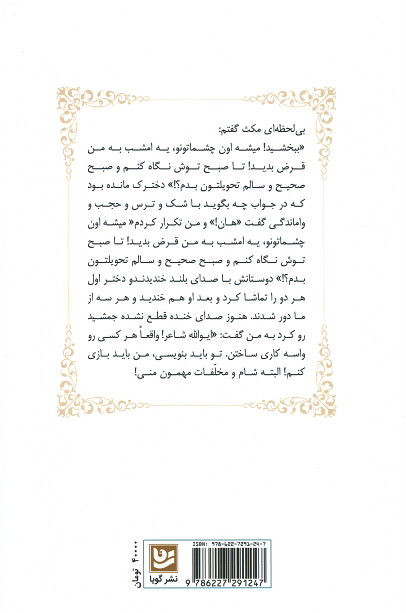 بی‌لحظه‌ای مکث گفتم:
«ببخشید! میشه اون چشماتونو، یه امشب به من
قرض بدید! تا صبح توش نگاه کنم و صبح
صحیح و سالم تحویلتون بدم؟!» دخترک مانده بود
که در جواب چه بگوید با شک و ترس و حجب و
واماندگی گفت «هان!» و من تکرار کردم« میشه اون
چشماتونو، یه امشب به من قرض بدید! تا صبح
توش نگاه کنم و صبح صحیح و سالم تحویلتون
بدم؟!» دوستانش با صدای بلند خندیدندو دختر اول
هر دو را تماشا کرد و بعد او هم خندید و هر سه از
ما دور شدند. هنوز صدای خنده قطع نشده جمشید
رو کرد به من گفت: «ایوالله شاعر! واقعاً هر کسی رو
واسه کاری ساختن. تو باید بنویسی، من باید بازی
کنم! البته شام و مخلّفات مهمون منی!
ISBN: 978-622-7291-24-7
9 786227 291247
نشر گویا
۴۰۰۰۰ تومان